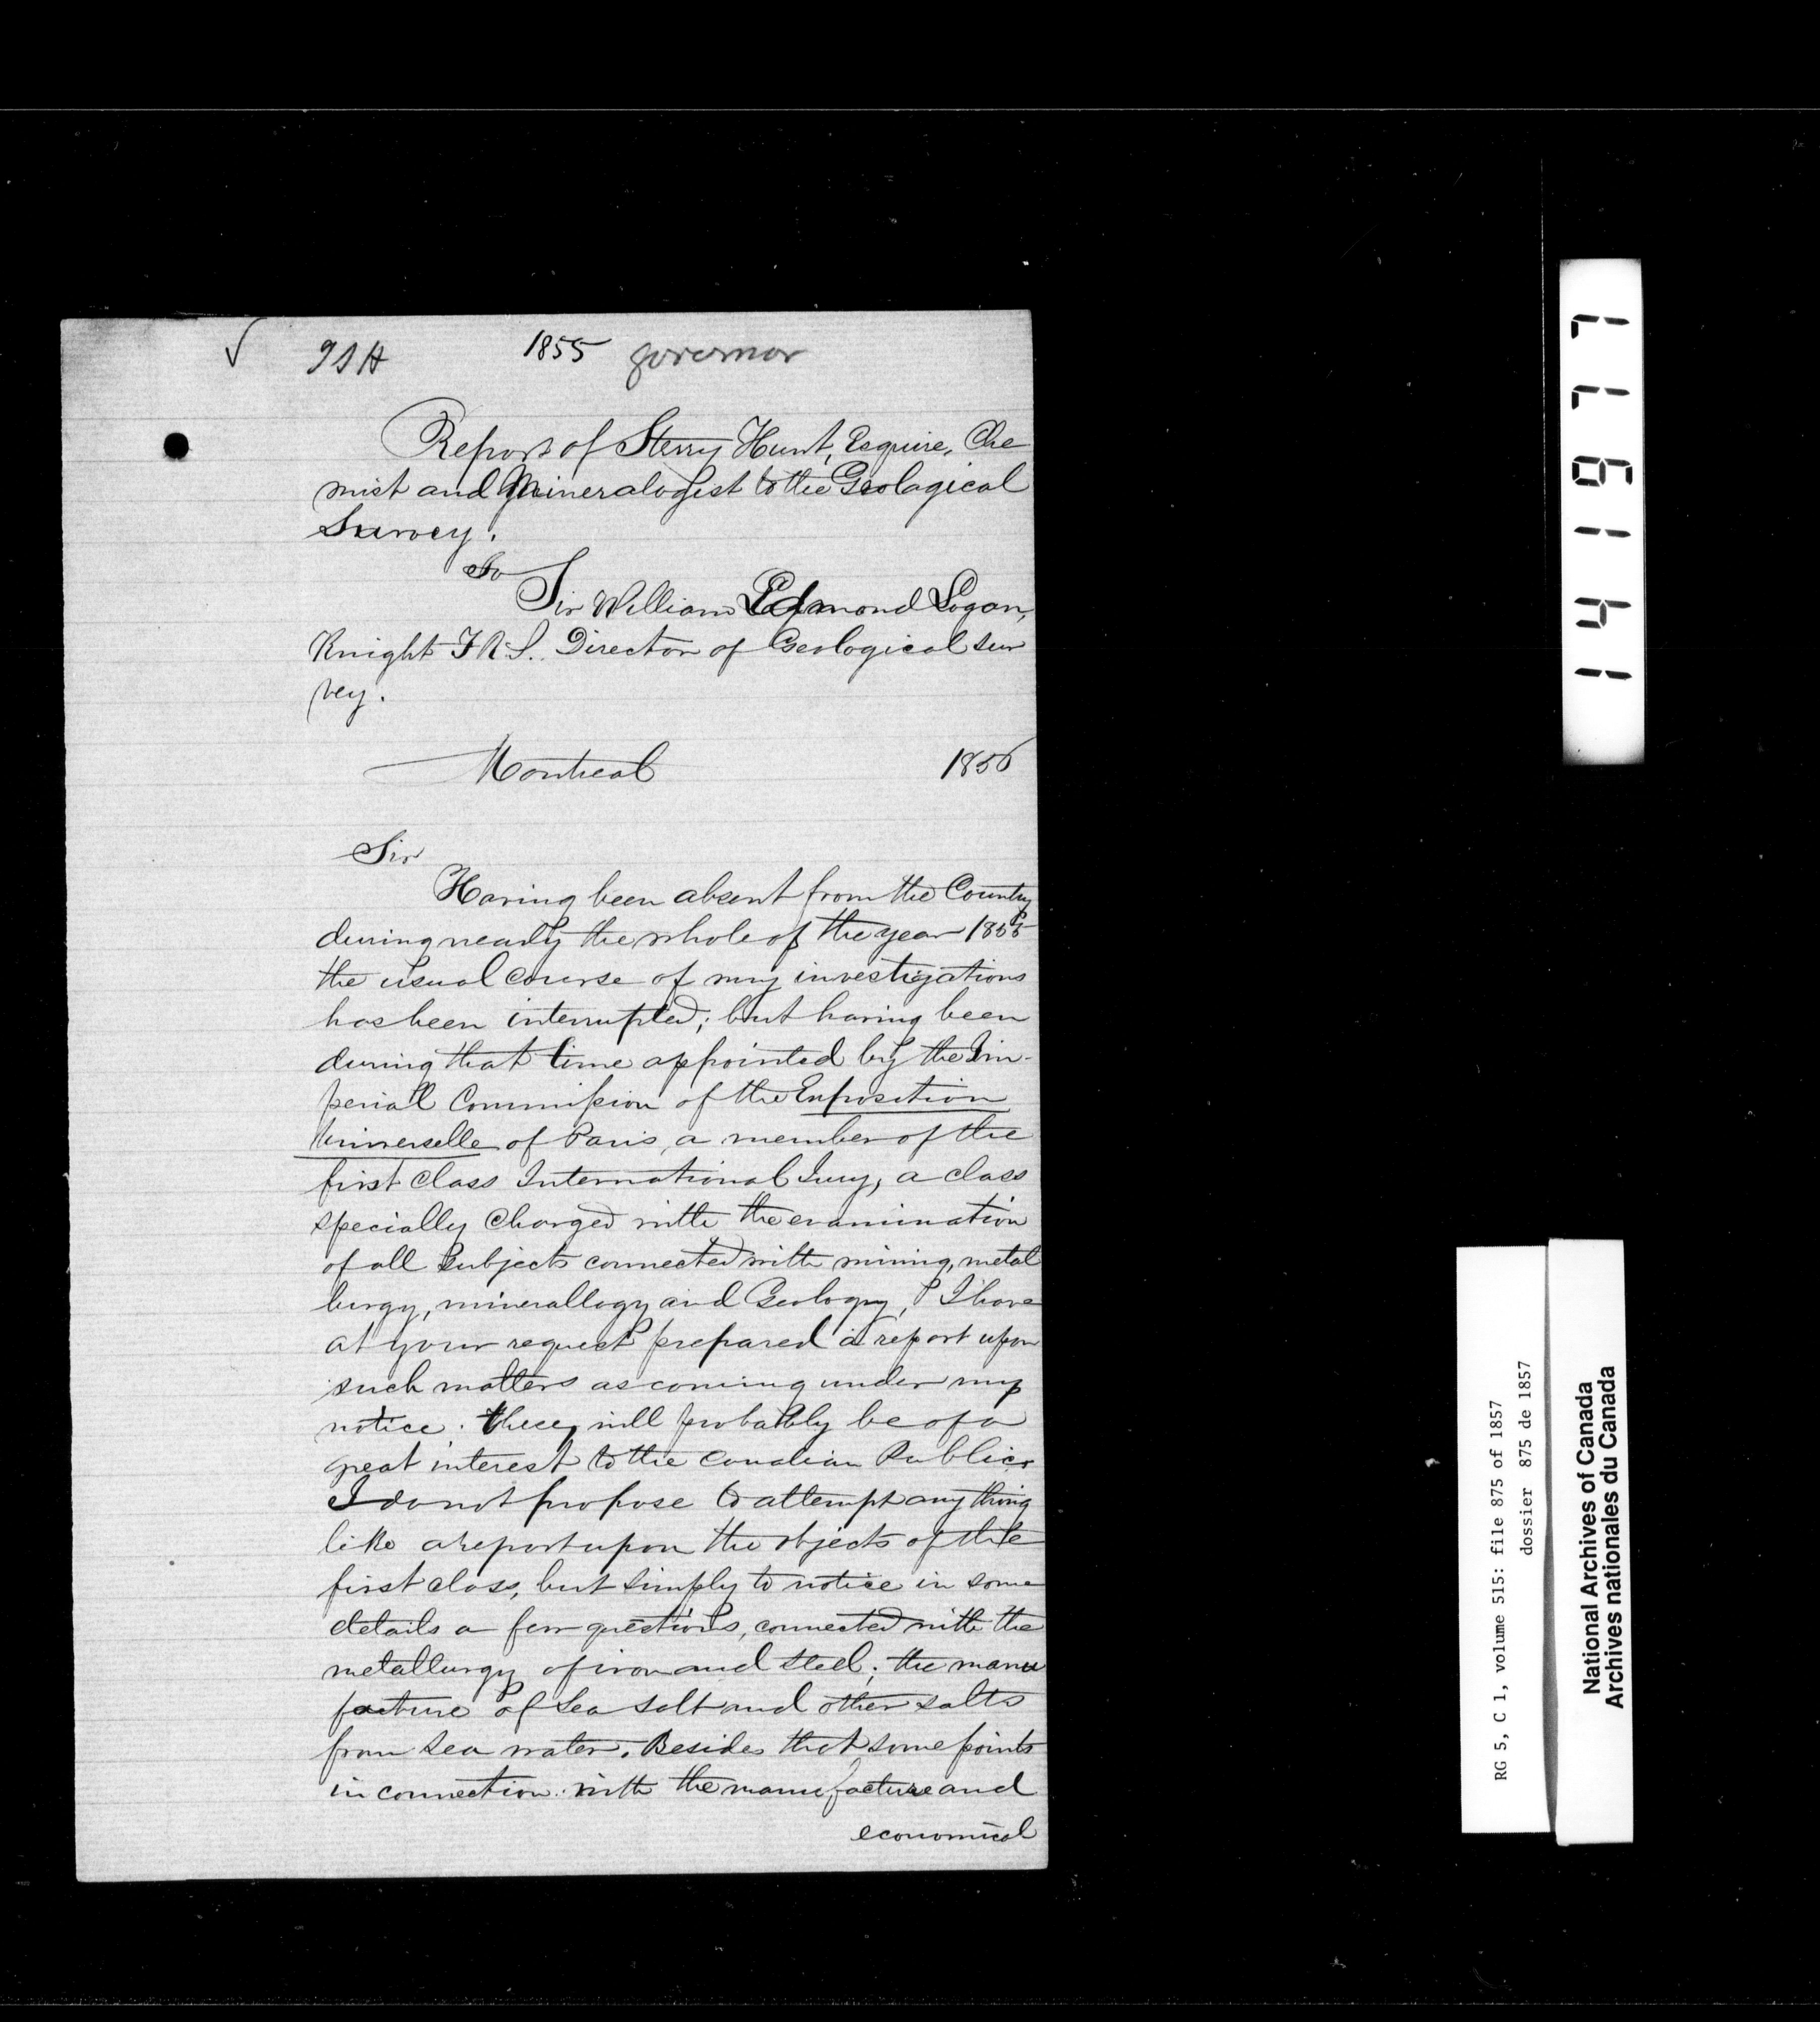 √ TSH 1855 governor
Report of Sterry Hunt, Esquire, Che
mist and Mineralogist to the Geological
Survey.
To
Sir William Edmond Logan,
Knight F R S. Director of Geological sur
vey.
Montreal 1856
Sir
Having been absent from the Country
during nearly the whole of the year 1855
the usual course of my investigations
has been interrupted; but having been
during that time appointed by the Im-
perial Commission of the Exposition
Universelle of Paris, a member of the
first Class International Jury, a class
specially Charged with the examination
of all subjects connected with mining, metal
lurgy, minerallogy and Geology, I have
at your request prepared a report upon
such matters as coming under my
notice. they will probably be of a
great interest to the Canadian Public.
I do not propose to attempt any thing
like a report upon the objects of the
first class, but simply to notice in some
details a few questions, connected with the
metallurgy of iron and steel; the manu
facture of sea salt and other salts
from sea water. Besides that some points
in connection with the manufacture and
economical
1 4 1 9 7 7
RG 5, C 1, volume 515: file 875 of 1857
dossier 875 de 1857
National Archives of Canada
Archives nationales du Canada